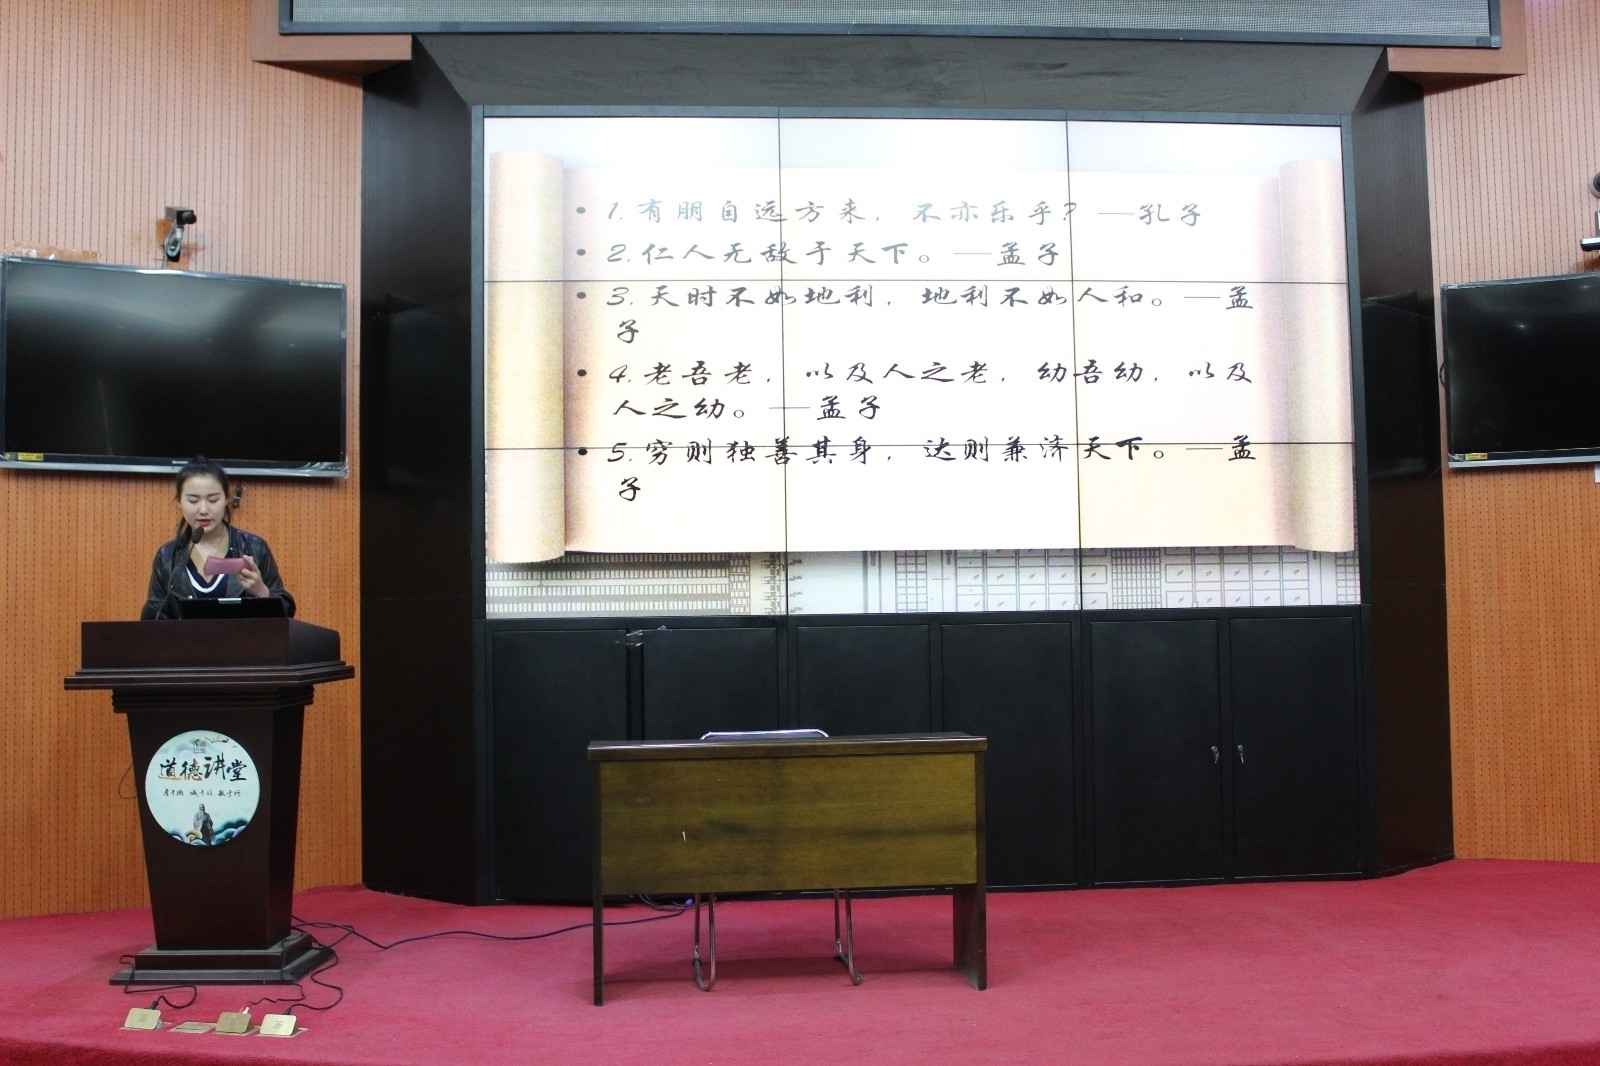 1.有朋自远方来，不亦乐乎？—孔子
2.仁人无敌于天下。—孟子
3.天时不如地利，地利不如人和。—孟
子
4.老吾老，以及人之老，幼吾幼，以及
人之幼。—孟子
5.穷则独善其身，达则兼济天下。—孟
子
道德讲堂